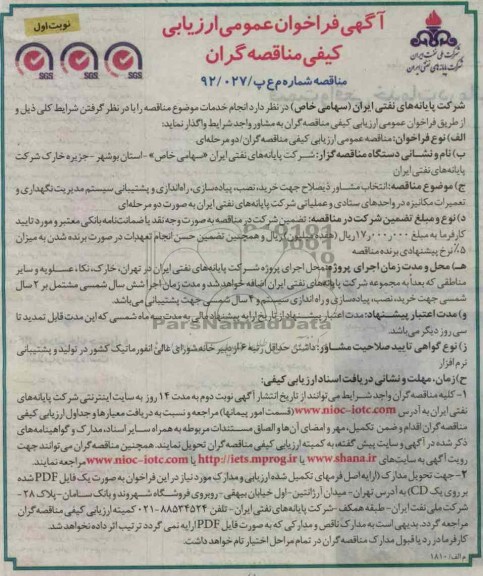 آگهی فراخوان عمومی ارزیابی
کیفی مناقصه گران
مناقصه شماره م ع پ/۹۲/۰۲۷
نوبت اول
شرکت ملی نفت ایران
شرکت پایانه‌های نفتی ایران
SGS SGS SGS
شرکت پایانه‌های نفتی ایران (سهامی خاص) در نظر دارد انجام خدمات موضوع مناقصه را با در نظر گرفتن شرایط کلی ذیل و
از طریق فراخوان عمومی ارزیابی کیفی مناقصه‌گران به مشاور واجد شرایط واگذار نماید:
الف) نوع فراخوان: مناقصه عمومی ارزیابی کیفی مناقصه‌گران/دو مرحله‌ای
ب) نام و نشانی دستگاه مناقصه‌گزار: شرکت پایانه‌های نفتی ایران «سهامی خاص» -استان بوشهر -جزیره خارک شرکت
پایانه‌های نفتی ایران
ج) موضوع مناقصه: انتخاب مشاور ذیصلاح جهت خرید، نصب، پیاده‌سازی، راه‌اندازی و پشتیبانی سیستم مدیریت نگهداری و
تعمیرات مکانیزه در واحدهای ستادی و عملیاتی شرکت پایانه‌های نفتی ایران به صورت دو مرحله‌ای
د) نوع و مبلغ تضمین شرکت در مناقصه: تضمین شرکت در مناقصه به صورت وجه نقد یا ضمانت‌نامه بانکی معتبر و مورد تایید
کارفرما به مبلغ ۱۷٫۰۰۰٫۰۰۰ ریال (هفده میلیون) ریال و همچنین تضمین حسن انجام تعهدات در صورت برنده شدن به میزان
۵٪ نرخ پیشنهادی برنده مناقصه
هـ) محل و مدت زمان اجرای پروژه: محل اجرای پروژه شرکت پایانه‌های نفتی ایران در تهران، خارک، نکا، عسلویه و سایر
مناطقی که بعداً به مجموعه شرکت پایانه‌های نفتی ایران اضافه خواهد شد و مدت زمان اجرا شش سال شمسی مشتمل بر ۲ سال
شمسی جهت خرید، نصب، پیاده‌سازی و راه اندازی سیستم و ۴ سال شمسی جهت پشتیبانی می‌باشد.
و) مدت اعتبار پیشنهاد: مدت اعتبار پیشنهاد از تاریخ ارایه پیشنهاد مالی به مدت سه ماه شمسی که این مدت قابل تمدید تا
سی روز دیگر می‌باشد.
ز) نوع گواهی تایید صلاحیت مشاور: داشتن حداقل رتبه ۶ از دبیرخانه شورای عالی انفورماتیک کشور در تولید و پشتیبانی
نرم افزار
ح) زمان، مهلت و نشانی دریافت اسناد ارزیابی کیفی:
۱-کلیه مناقصه‌گران واجد شرایط می‌توانند از تاریخ انتشار آگهی نوبت دوم به مدت ۱۴ روز به سایت اینترنتی شرکت پایانه‌های
نفتی ایران به آدرس www.nioc-iotc.com (قسمت امور پیمانها) مراجعه و نسبت به دریافت معیارها و جداول ارزیابی کیفی
مناقصه‌گران اقدام و ضمن تکمیل، مهر و امضای آن‌ها و الصاق مستندات مربوطه به همراه سایر اسناد، مدارک و گواهینامه‌های
ذکر شده در آگهی و سایت پیش گفته، به کمیته ارزیابی کیفی مناقصه‌گران تحویل نمایند. همچنین مناقصه‌گران می‌توانند جهت
رویت آگهی به سایت‌های www.shana.ir یا http://iets.mprog.ir یا www.nioc-iotc.com مراجعه نمایند.
۲-جهت تحویل مدارک (ارایه اصل فرمهای تکمیل شده ارزیابی و مدارک مورد نیاز در این فراخوان به صورت یک فایل PDF شده
بر روی یک CD) به آدرس تهران- میدان آرژانتین- اول خیابان بیهقی- روبروی فروشگاه شهروند و بانک سامان- پلاک ۲۸-
شرکت ملی نفت ایران- طبقه همکف- شرکت پایانه‌های نفتی ایران- تلفن ۸۸۵۲۴۵۲۴-۰۲۱ کمیته ارزیابی کیفی مناقصه‌گران
مراجعه گردد. بدیهی است به مدارک ناقص و مدارکی که به صورت فایل PDF ارایه نمی گردد ترتیب اثر داده نخواهد شد.
کارفرما در رد یا قبول مدارک مناقصه‌گران در تمام مراحل اختیار تام خواهد داشت.
م الف/۱۸۱۰
ParsNamadData